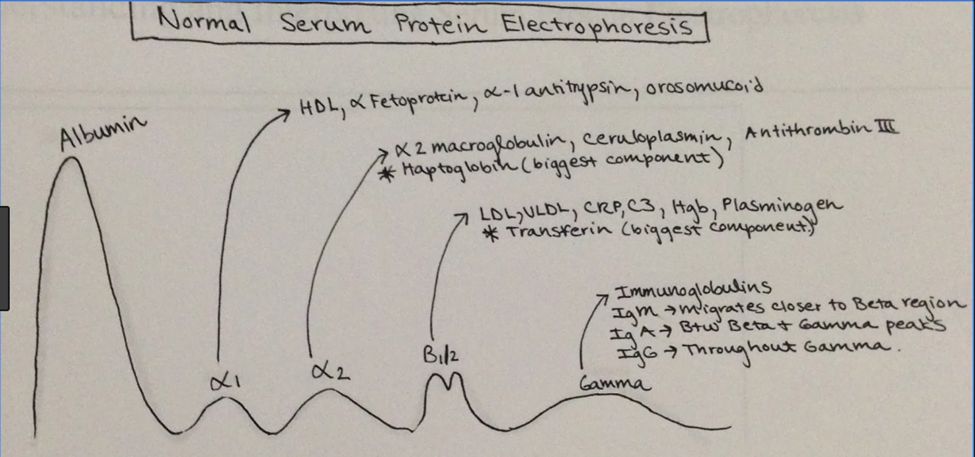 Normal Serum Protein Electrophoresis
HDL, α Fetoprotein, α-1 antitrypsin, orosomucoid
Albumin
α2 macroglobulin, ceruloplasmin, Antithrombin III
* Haptoglobin (biggest component)
LDL, VLDL, CRP, C3, Hgb, Plasminogen
* Transferin (biggest component)
Immunoglobulins
IgM → migrates closer to Beta region
IgA → Btw Beta + Gamma peaks
IgG → Throughout Gamma.
α1
α2
B1/2
Gamma